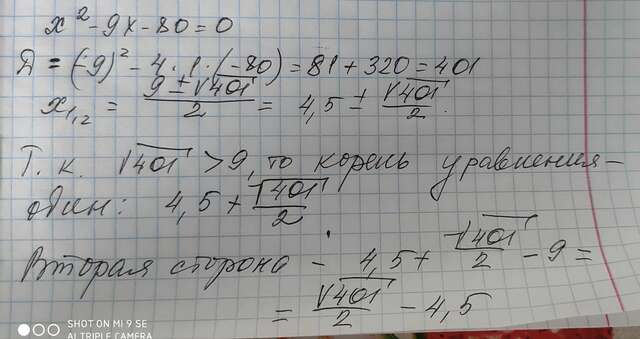 x² - 9x - 80 = 0
Д = (-9)² - 4 · 1 · (-80) = 81 + 320 = 401
x₁,₂ = (9 ± √401)/2 = 4,5 ± √401/2.
Т. к. √401 > 9, то корень уравнения -
один: 4,5 + √401/2
Вторая сторона - 4,5 + √401/2 - 9 =
= √401/2 - 4,5
SHOT ON MI 9 SE
AI TRIPLE CAMERA